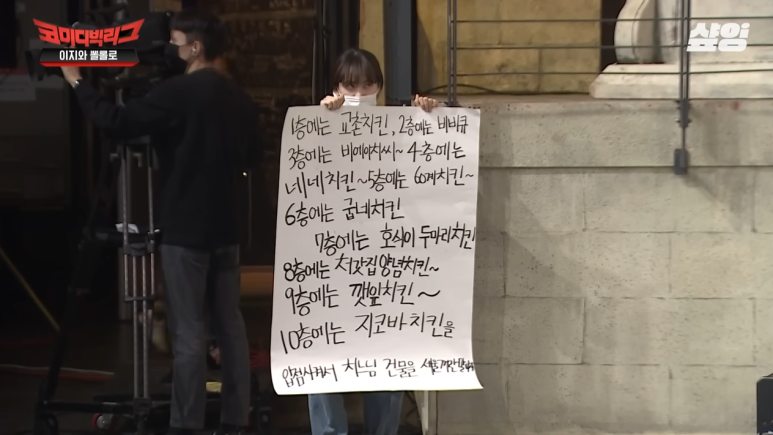 코미디빅리그
이지와 뽈롤로
샾잉
1층에는 교촌치킨, 2층에는 비비큐
3층에는 비에이치씨~ 4층에는
네네치킨~5층에는 60계치킨~
6층에는 굽네치킨
7층에는 호식이 두마리치킨
8층에는 처갓집양념치킨~
9층에는 깻잎치킨~
10층에는 지코바치킨을
입점시켜서 치느님 건물을